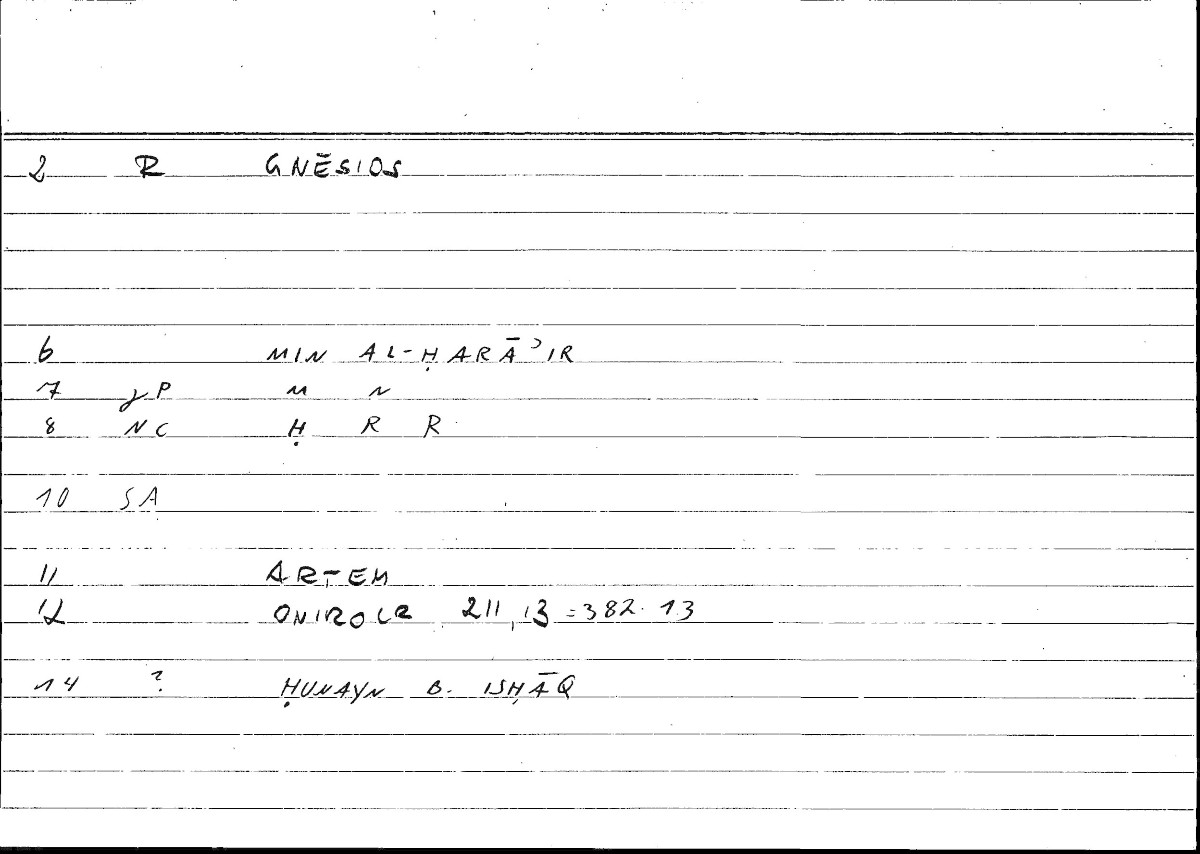 2 R GNĒSIOS
6 MIN AL-ḤARĀʾIR
7 P M N
8 NC Ḥ R R
10 SA
11 ARTEM
12 ONIROCR 211,13 = 382.13
14 ? ḤUNAYN B. ISḤĀQ